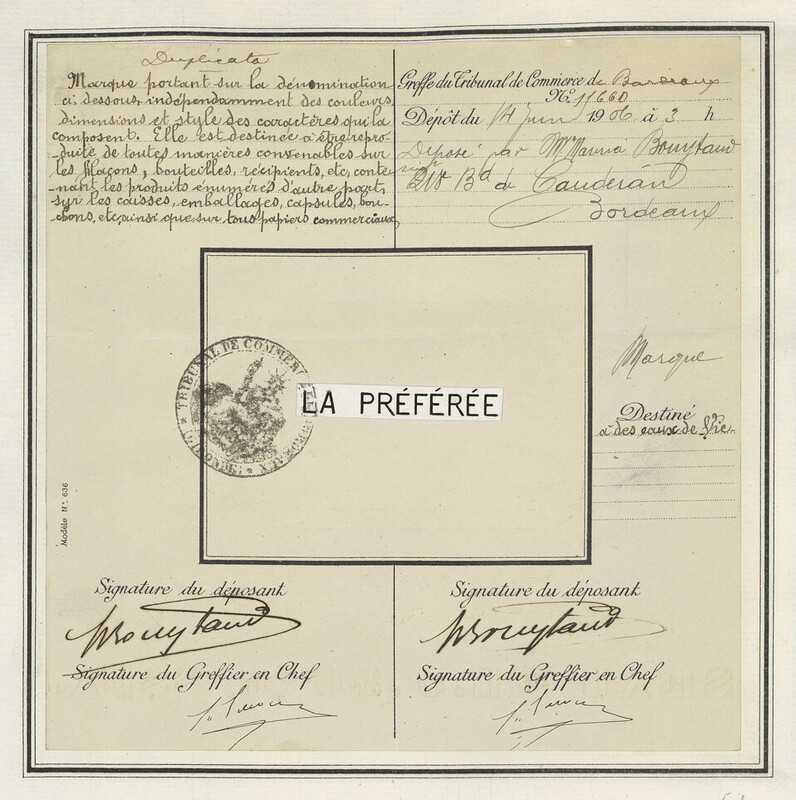 Duplicata
Marque portant sur la dénomination
ci-dessous, indépendamment des couleurs,
dimensions et style des caractères qui la
composent. Elle est destinée à être repro-
duite de toutes manières convenables sur
les flacons, bouteilles, récipients, etc, conte-
-nant les produits énumérés d'autre part,
sur les caisses, emballages, capsules, bou-
chons, etc, ainsi que sur tous papiers commerciaux.
Greffe du Tribunal de Commerce de Bordeaux
N° 11660
Dépôt du 14 juin 1906 à 3 h
Déposé par Bouytaud
Bd de Caudéran
Bordeaux
TRIBUNAL DE COMMERCE DE BORDEAUX
(GIRONDE)
LA PRÉFÉRÉE
Marque
Destiné
à des eaux de Vie-
Modèle N° 636
Signature du déposant
Bouytaud
Signature du Greffier en Chef
Signature du déposant
Bouytaud
Signature du Greffier en Chef